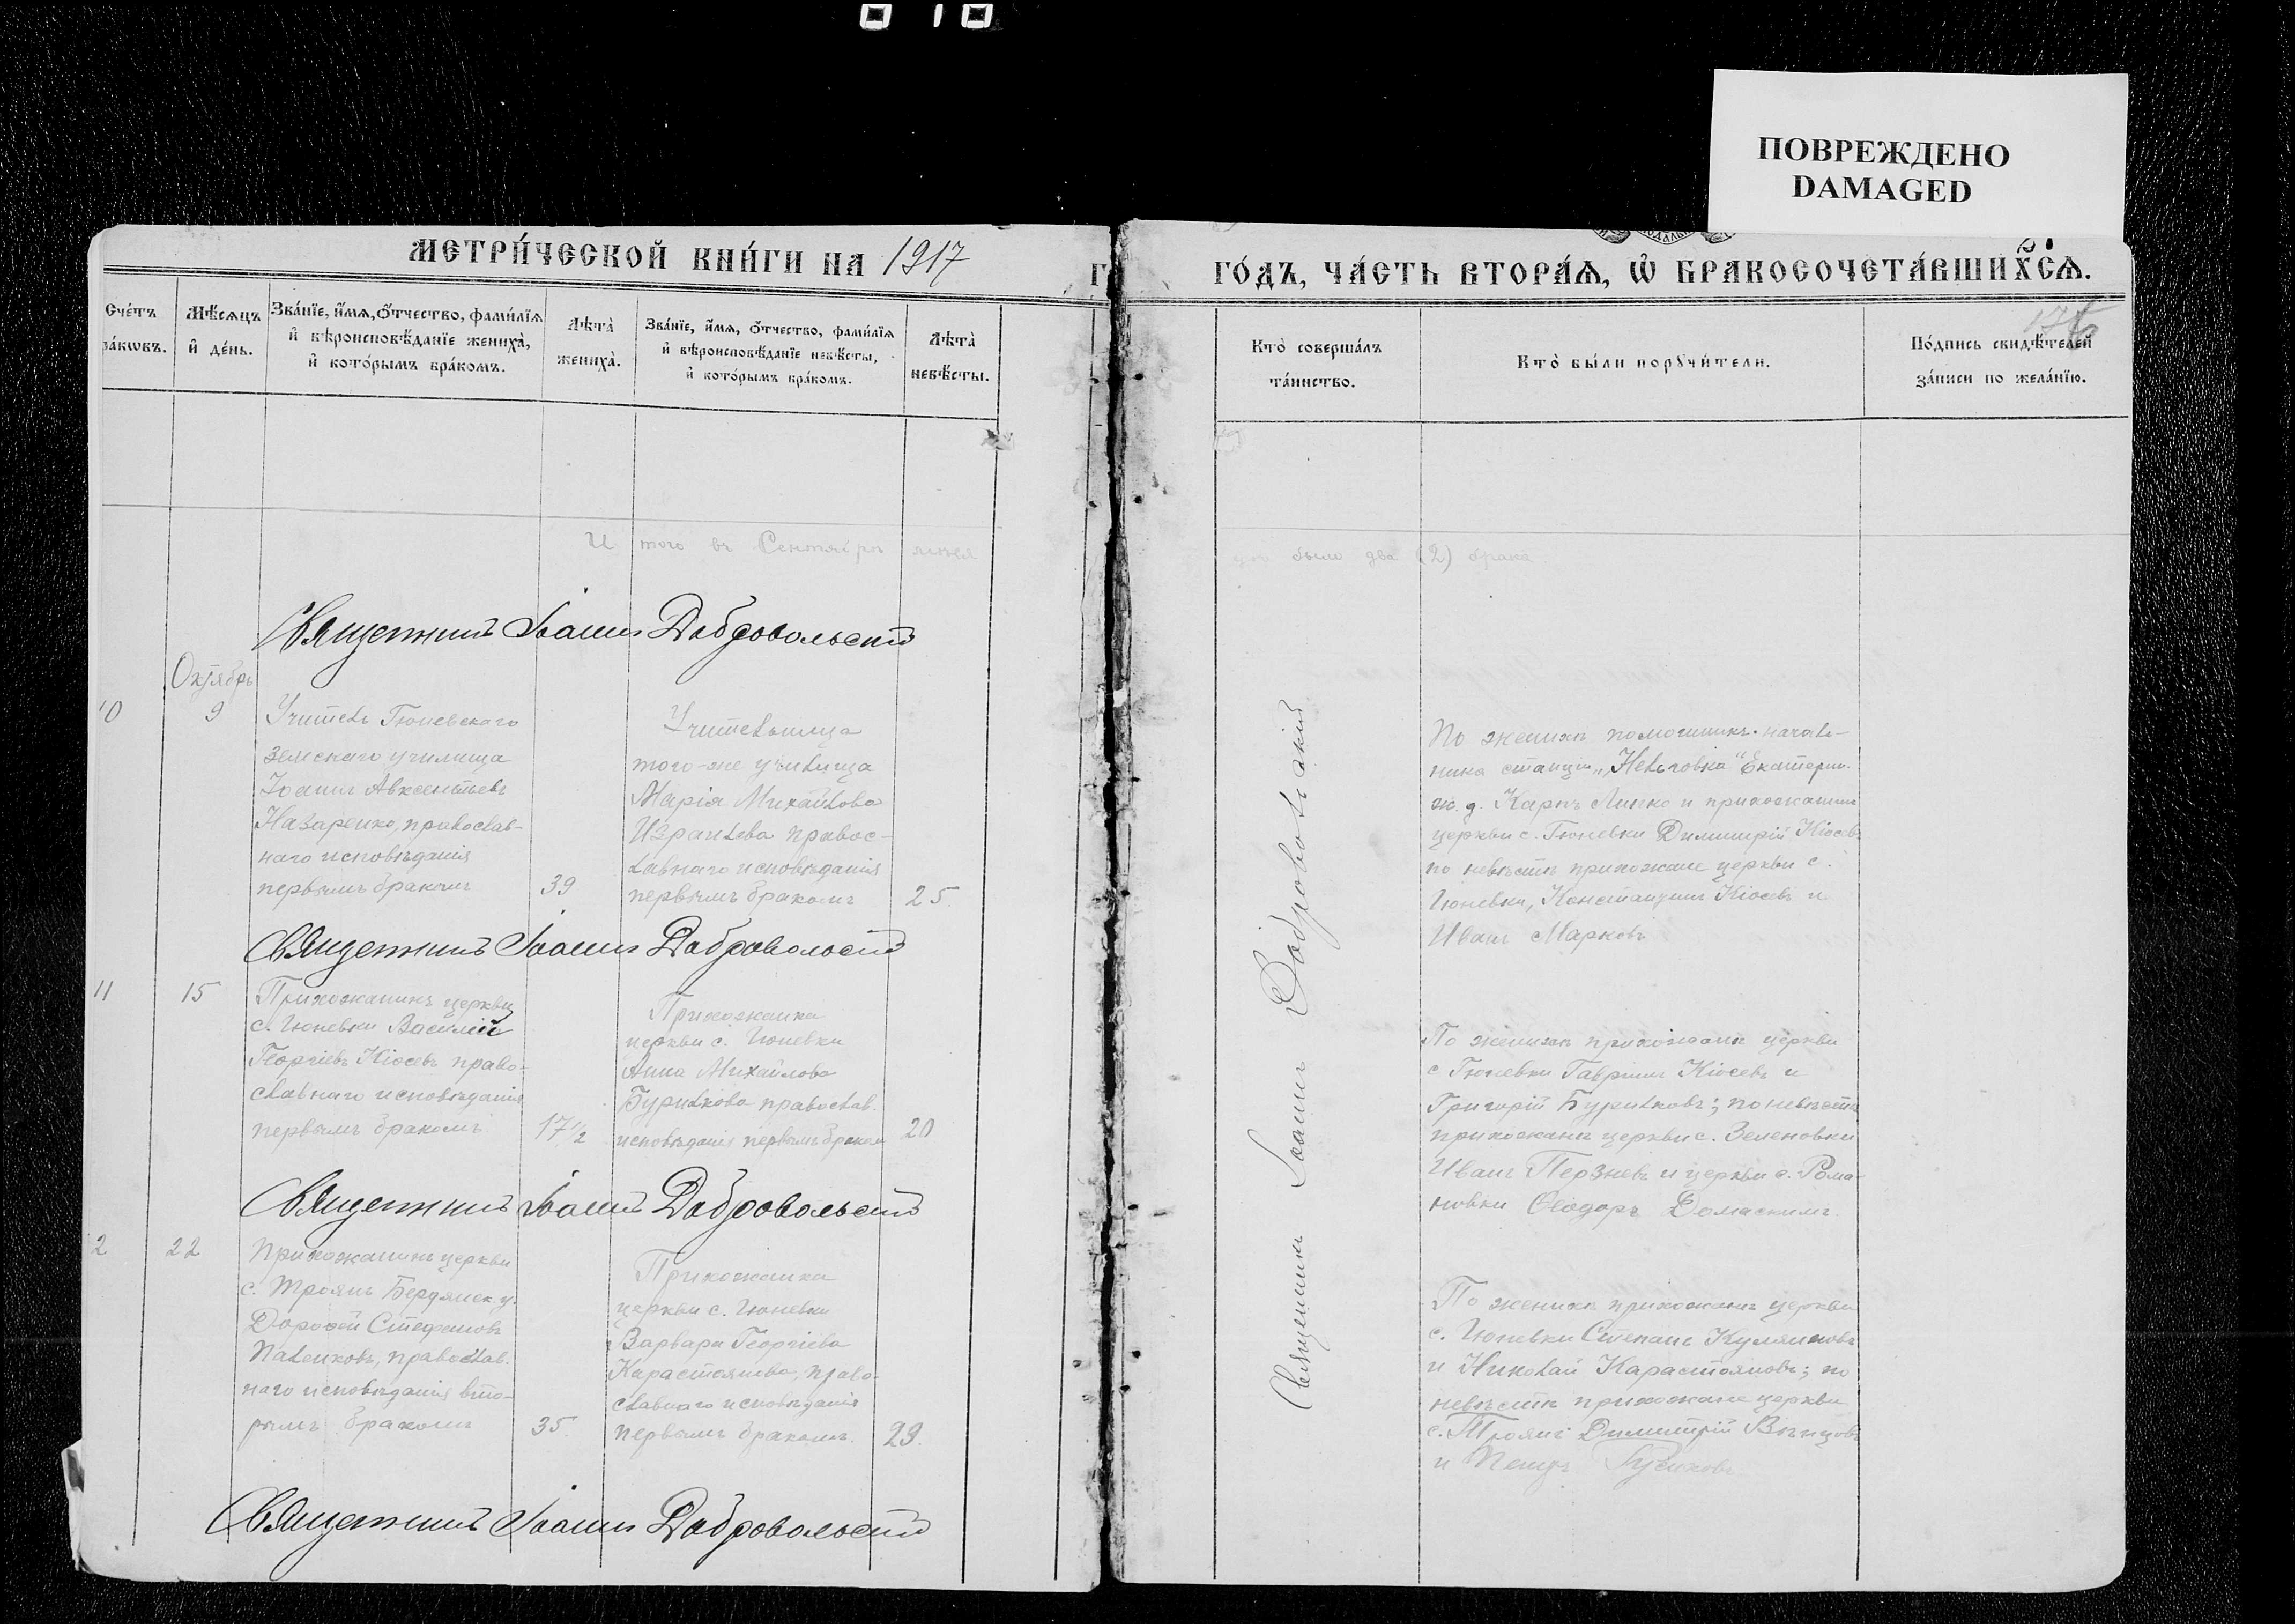 ПОВРЕЖДЕНО
DAMAGED
МЕТРИ́ЧЕСКОЙ КНИ́ГИ НА 1917
ГО́ДЪ, ЧА́СТЬ ВТОРА́Ѧ, Ѡ҆ БРАКОСОЧЕТА́ВШИХСѦ.
176
Сче́тъ
ра́кѡвъ.
Мѣ́сѧцъ
и҆ де́нь.
Зва́нїе, и҆́мѧ, ѻ҆́тчество, фами́лїѧ
и҆ вѣроисповѣ́данїе жениха̀,
и҆ кото́рымъ бра́комъ.
Лѣта̀
жениха̀.
Зва́нїе, и҆́мѧ, ѻ҆́тчество, фами́лїѧ
и҆ вѣроисповѣ́данїе невѣ́сты,
и҆ кото́рымъ бра́комъ.
Лѣта̀
невѣ́сты.
Кто̀ соверша́лъ
та́инство.
Кто̀ бы́ли порꙋчи́тели.
По́дпись свидѣ́телей
за́писи по жела́нїю.
И того въ Сентябрѣ
было два (2) брака
Священникъ Іоаннъ Добровольскій
Октябрь
10
9
Учитель Гюневскаго
земскаго училища
Іоаннъ Авксентьевъ
Назаренко, православ-
наго исповѣданія
первымъ бракомъ
39
Учительница
того-же училища
Марія Михайлова
Израилева правос-
лавнаго исповѣданія
первымъ бракомъ
25.
По женихѣ помощникъ началь-
ника станціи "Нельговка" Екатерин.
ж. д. Карпъ Линко и прихожанинъ
церкви с. Гюневки Димитрій Кіосевъ
по невѣстѣ прихожане церкви с.
Гюневки, Константинъ Кіосевъ и
Иванъ Марковъ
Священникъ Іоаннъ Добровольскій
11
15
Прихожанинъ церкви
с. Гюневки Василій
Георгіевъ Кіосевъ право-
славнаго исповѣданія
первымъ бракомъ.
17 1/2
Прихожанка
церкви с. Гюневки
Анна Михайлова
Бурилкова православ.
исповѣданія первымъ бракомъ
20
По женихѣ прихожане церкви
с Гюневки Гавріилъ Кіосевъ и
Григорій Бурилковъ; по невѣстѣ
прихожане церкви с. Зеленовки
Иванъ Перзневъ и церкви с. Рома-
новки Ѳеодоръ Домаскинъ.
Священникъ Іоаннъ Добровольскій
2
22
Прихожанинъ церкви
с. Троянъ Бердянск. у.
Дороѳей Стефановъ
Паленковъ, православ.
наго исповѣданія вто-
рымъ бракомъ
35.
Прихожанка
церкви с. Гюневки
Варвара Георгіева
Карастоянова, право-
славнаго исповѣданія
первымъ бракомъ.
23.
По женихѣ прихожане церкви
с. Гюневки Степанъ Куляновъ
и Николай Карастояновъ; по
невѣстѣ прихожане церкви
с. Троянъ Димитрій
и Петръ Гусиковъ
Священникъ Іоаннъ Добровольскій
Священникъ Іоаннъ Добровольскій